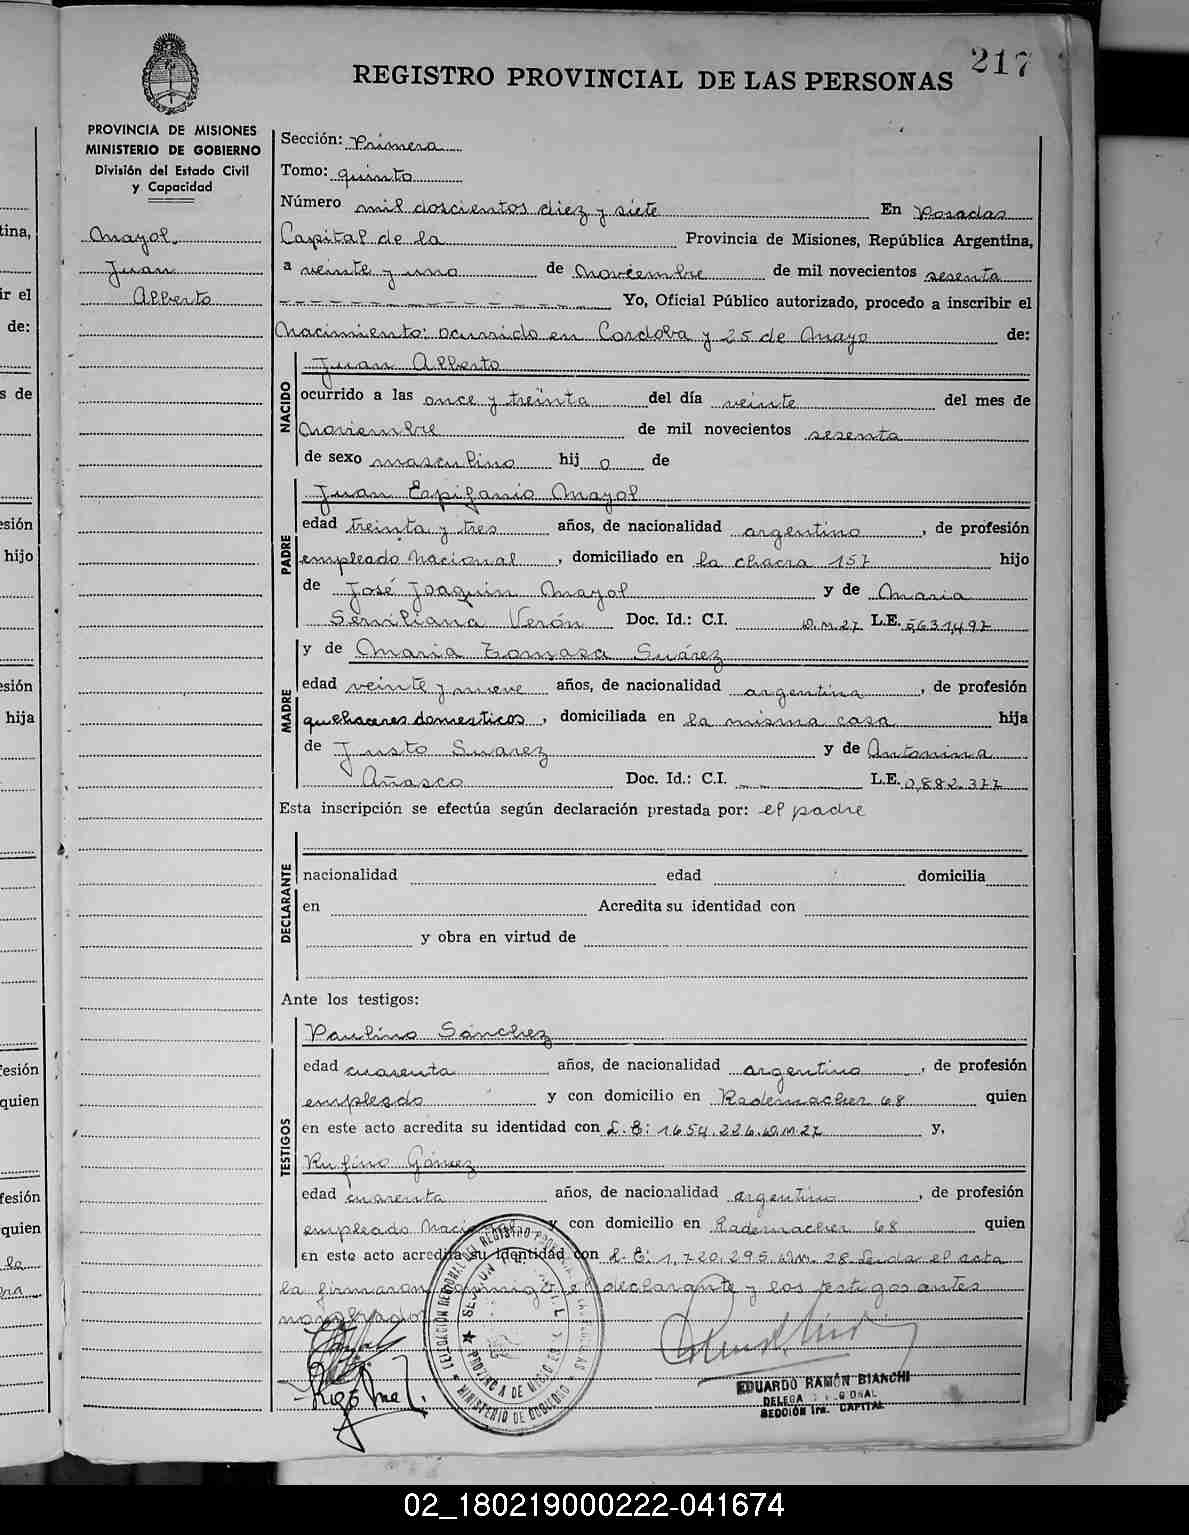 217
REGISTRO PROVINCIAL DE LAS PERSONAS
PROVINCIA DE MISIONES
MINISTERIO DE GOBIERNO
División del Estado Civil
y Capacidad
Mayol
Juan
Alberto
Sección: Primera
Tomo: quinto
Número mil doscientos diez y siete En Posadas
Capital de la Provincia de Misiones, República Argentina,
a veinte y uno de Noviembre de mil novecientos sesenta
Yo, Oficial Público autorizado, procedo a inscribir el
Nacimiento: ocurrido en Cordoba y 25 de Mayo de:
NACIDO
Juan Alberto
ocurrido a las once y treinta del día veinte del mes de
Noviembre de mil novecientos sesenta
de sexo masculino hij o de
PADRE
Juan Espifanio Mayol
edad treinta y tres años, de nacionalidad argentino, de profesión
empleado Nacional, domiciliado en la chacra 157 hijo
de José Joaquin Mayol y de Maria
Semiliana Verón Doc. Id.: C.I. D.M.27 L.E. 5,631,497
y de Maria Tomasa Suárez
MADRE
edad veinte y nueve años, de nacionalidad argentina, de profesión
quehaceres domesticos, domiciliada en la misma casa hija
de Justo Suarez y de Antonina
Añasco Doc. Id.: C.I. L.E. 0,882.377
Esta inscripción se efectúa según declaración prestada por: el padre
DECLARANTE
nacionalidad edad domicilia
en Acredita su identidad con
y obra en virtud de
Ante los testigos:
TESTIGOS
Paulino Sánchez
edad cuarenta años, de nacionalidad argentino, de profesión
empleado y con domicilio en Rademacher 68 quien
en este acto acredita su identidad con L.E: 1654.226.D.M.27 y,
Rufino Gómez
edad cuarenta años, de nacionalidad argentino, de profesión
empleado Nacional y con domicilio en Rademacher 68 quien
en este acto acredita su identidad con L.E: 1,720,295.D.M.28 Leida el acta
la firmaron conmigo el declarante y los testigos antes
nombrados
DELEGACIÓN REGIONAL DEL REGISTRO PROVINCIAL DE LAS PERSONAS
MINISTERIO DE GOBIERNO
PROVINCIA DE MISIONES
EDUARDO RAMÓN BIANCHI
DELEGADO REGIONAL
SECCIÓN 1ra. CAPITAL
02_180219000222-041674